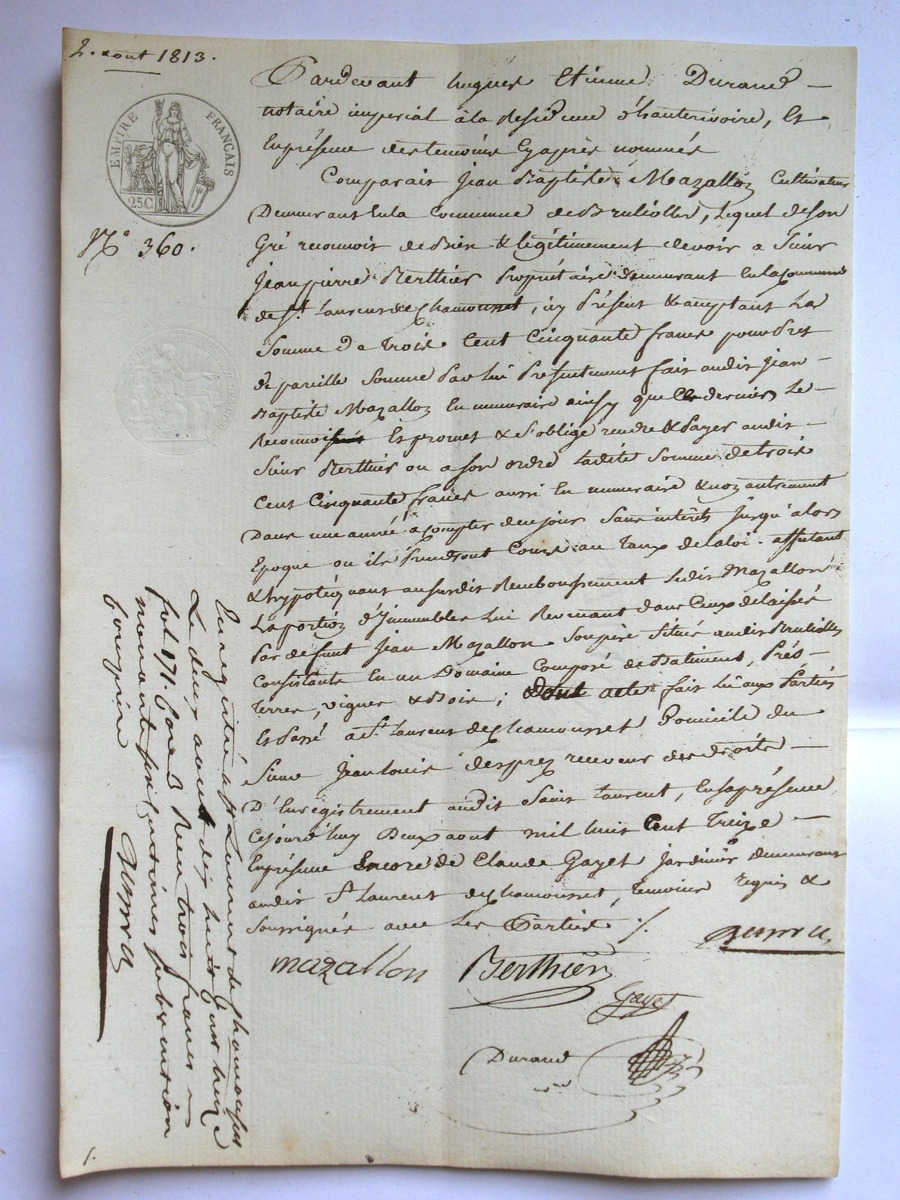 2. aout 1813.
EMPIRE FRANÇAIS
25C.
N.° 360.
Pardevant hugues Etienne Durand
notaire imperial à la residence d'hauterivoire, Et
En présence des temoins Cyaprès nommés
Comparait Jean Baptiste Mazallon Cultivateur
Demeurant En la Commune de Brullioles, Lequel de Son
Gré reconnoit de Bien & légitimement devoir a Sieur
Jean pierre Berthier Propriétaire demeurant En la Commune
de St. Laurent de Chamousset, icy Présent & acceptant La
Somme De Trois Cent Cinquante francs pour Pret
de pareille Somme Par lui Présentement fait audit Jean
Baptiste Mazallon En numeraire ainsy que Ce dernier Le
Reconnoit Et promet & S'oblige rendre & Payer audit
Sieur Berthier ou a Son ordre Ladite Somme de trois
Cent Cinquante francs aussi En numeraire & non autrement
Dans une année à compter de ce jour Sans intérêts Jusqu'alors
Epoque ou ils Prendront Cours au Taux de la loi. affectant
& hypotéquant au Susdit Remboursement Ledit Mazallon
La portion d'Immeubles Lui Revenant dans Ceux délaissés
Par défunt Jean Mazallon Son père Situés audit Brullioles
Consistants En un Domaine Composé de Batiment, Prés
Terres, vignes & Bois; Dont acte fait Lû aux Parties
Et Passé a St. Laurent de Chamousset Domicile du
Sieur Jean Louis Desprez receveur des droits
D'Enregistrement audit Saint Laurent, En Sa présence
Cejourd'huy Deux aout Mil huit Cent Treize
En présence Encore de Claude Gayet Jardinier demeurant
audit St. Laurent de Chamousset, Temoins requis &
Soussignés avec Les Parties ./.
mazallon Berthier
Gayet
Durand
Enregistré à St Laurent de Chamousset
Le deux aout dix huit Cent treize
fol. 171. Reçu trois francs